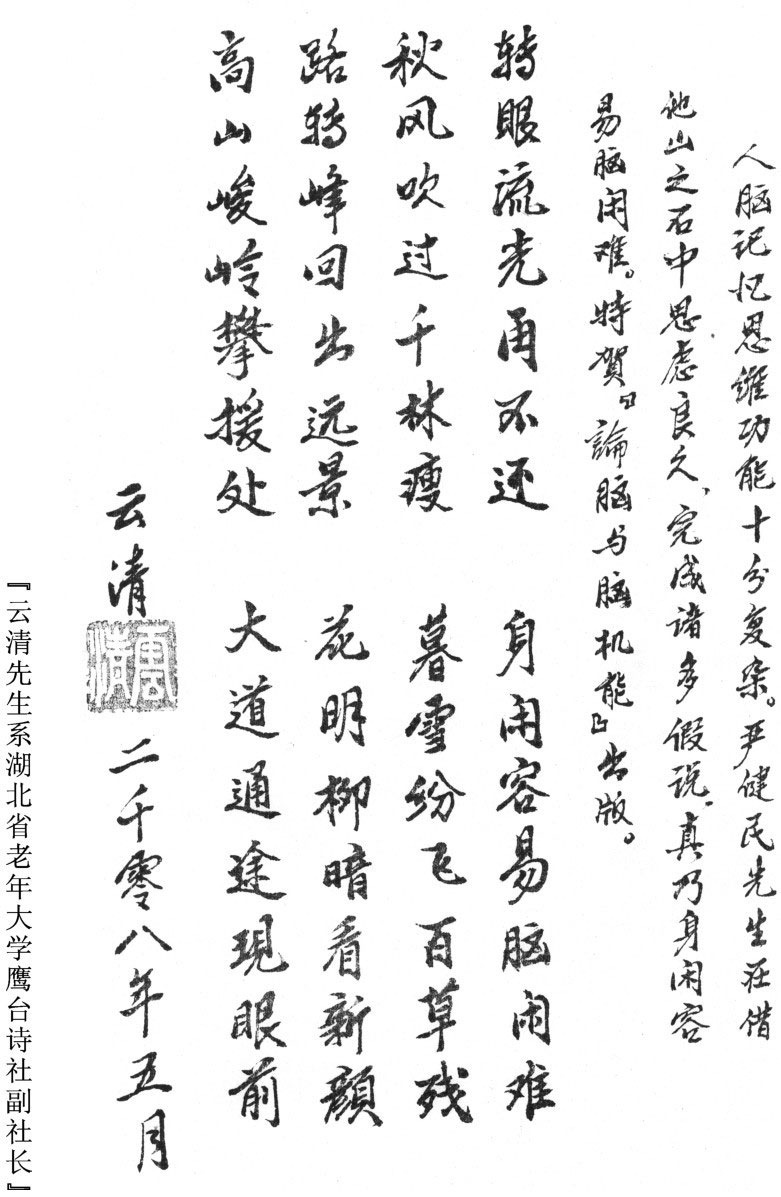 人脑记忆思维功能十分复杂。严健民先生在借
他山之石中思虑良久、完成诸多假说、真乃身闲容
易脑闲难。特贺『論脑与脑机能』出版。
转眼流光再不还 身闲容易脑闲难
秋风吹过千林瘦 暮雪纷飞百草残
路转峰回出远景 花明柳暗看新颜
高山峻岭攀援处 大道通途现眼前
云清 雲清 二千零八年五月
『云清先生系湖北省老年大学鹰台诗社副社长』